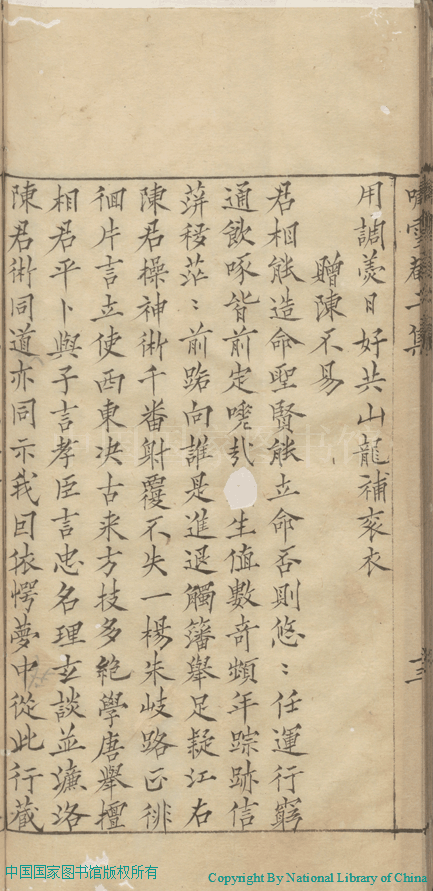 用調羹日好共山龍補衮衣
贈陳不易
君相能造命聖賢能立命否則悠〻任運行窮
通飲啄皆前定嗟㢤 生値數奇頻年踪跡信
萍移茫〻前路向誰是進退觸籓舉足疑江右
陳君操神術千畨射覆不失一楊朱岐路正徘
徊片言立使西東决古来方技多絶學唐舉檀
相君平卜與子言孝臣言忠名理玄談並濂洛
陳君術同道亦同示我囙依愕夢中從此行藏
雪 二集
中国国家图书馆版权所有
Copyright By National Library of China